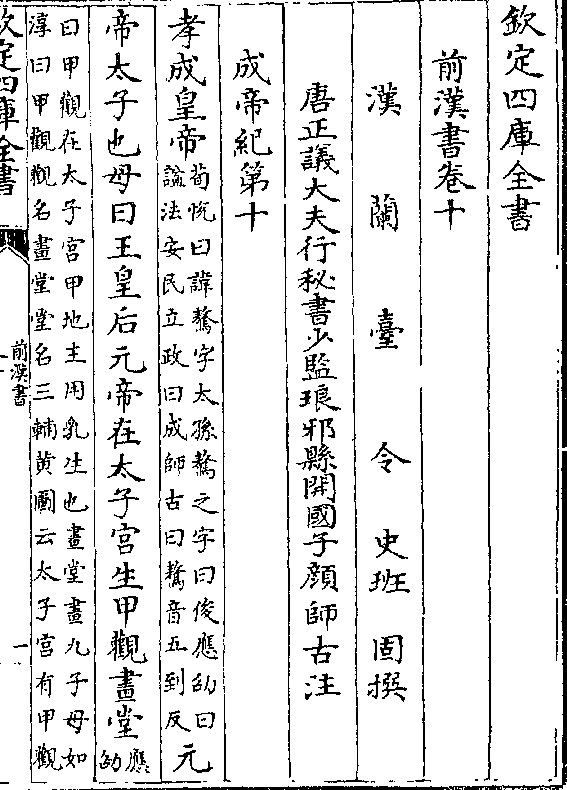 欽定四庫全書
前漢書卷十
漢蘭臺令史班固撰
唐正議大夫行秘書少監琅邪縣開國子顔師古注
成帝紀第十
孝成皇帝
荀悦曰諱驁字太孫驁之字曰俊應劭曰
諡法安民立政曰成師古曰驁音五到反
元
帝太子也母曰王皇后元帝在太子宫生甲觀畫堂
應
劭
曰甲觀在太子宫甲地主用乳生也畫堂畫九子母如
淳曰甲觀觀名畫堂堂名三輔黄圖云太子宫有甲觀
欽定四庫全書
前漢書
一